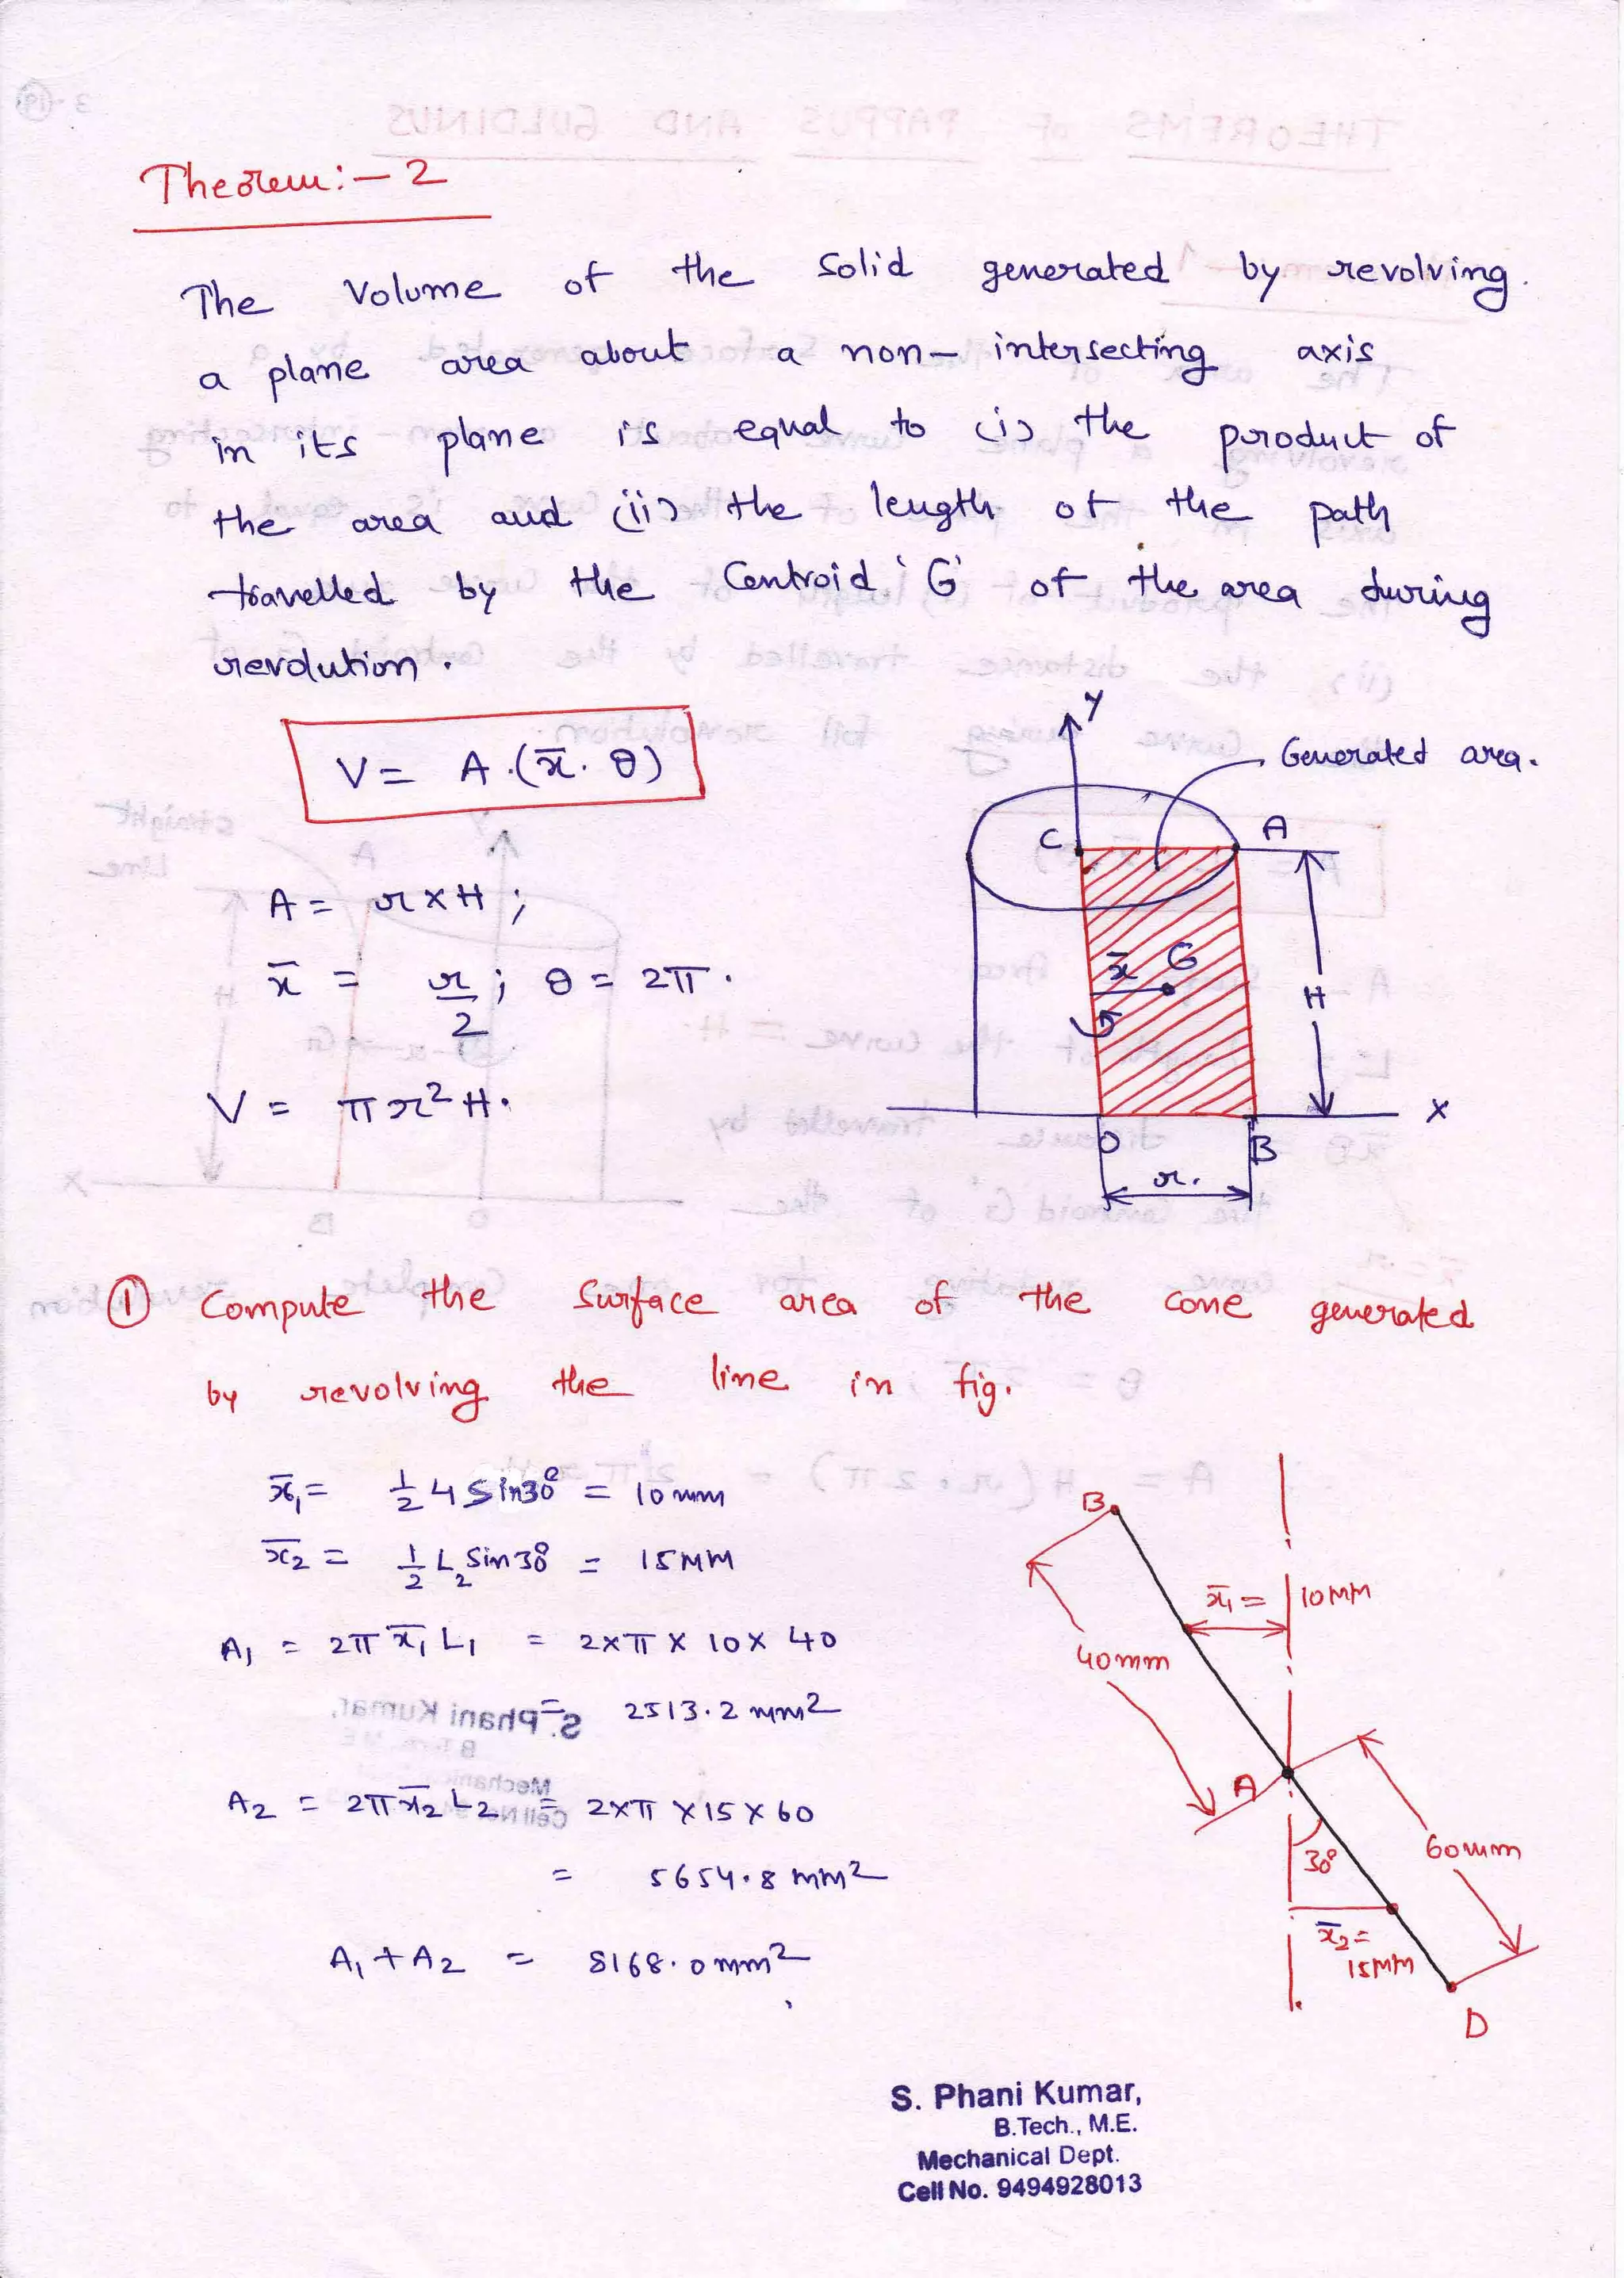 Theorem:- 2
The Volume of the Solid generated by revolving
a plane area about a non-intersecting axis
in its plane is equal to (i) the product of
the area and (ii) the length of the path
travelled by the Centroid 'G' of the area during
revolution.
V = A.(x̄. θ)
y
Generated area.
C
A
A = r x H ;
x̄ = r/2 ; θ = 2π.
x̄ G
H
V = πr²H.
X
O
B
r.
① Compute the Surface area of the cone generated
by revolving the line in fig.
x̄₁ = 1/2 4 Sin30° = 10mm
x̄₂ = 1/2 L₂ Sin30° = 15MM
A₁ = 2π x̄₁ L₁ = 2xπ x 10 x 40
= 2513.2 mm²
A₂ = 2π x̄₂ L₂ = 2xπ x 15 x 60
= 5654.8 mm²
A₁ + A₂ = 8168.0 mm²
B
x̄₁ = 10MM
40mm
A
30°
60mm
x̄₂ =
15MM
D
S. Phani Kumar,
B.Tech., M.E.
Mechanical Dept.
Cell No. 9494928013